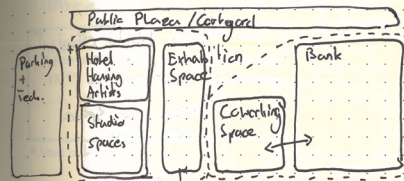 Public Plaza / Cortyard
Parking
+
Tech.
Hotel
Housing
Artists
Studio
spaces
Exhabition
Space
Coworking
Space
Bank